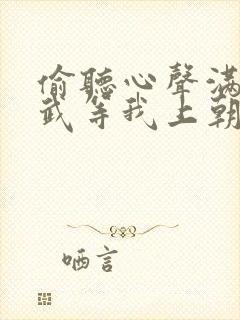 偷聽心聲滿
武等我上朝
哂言